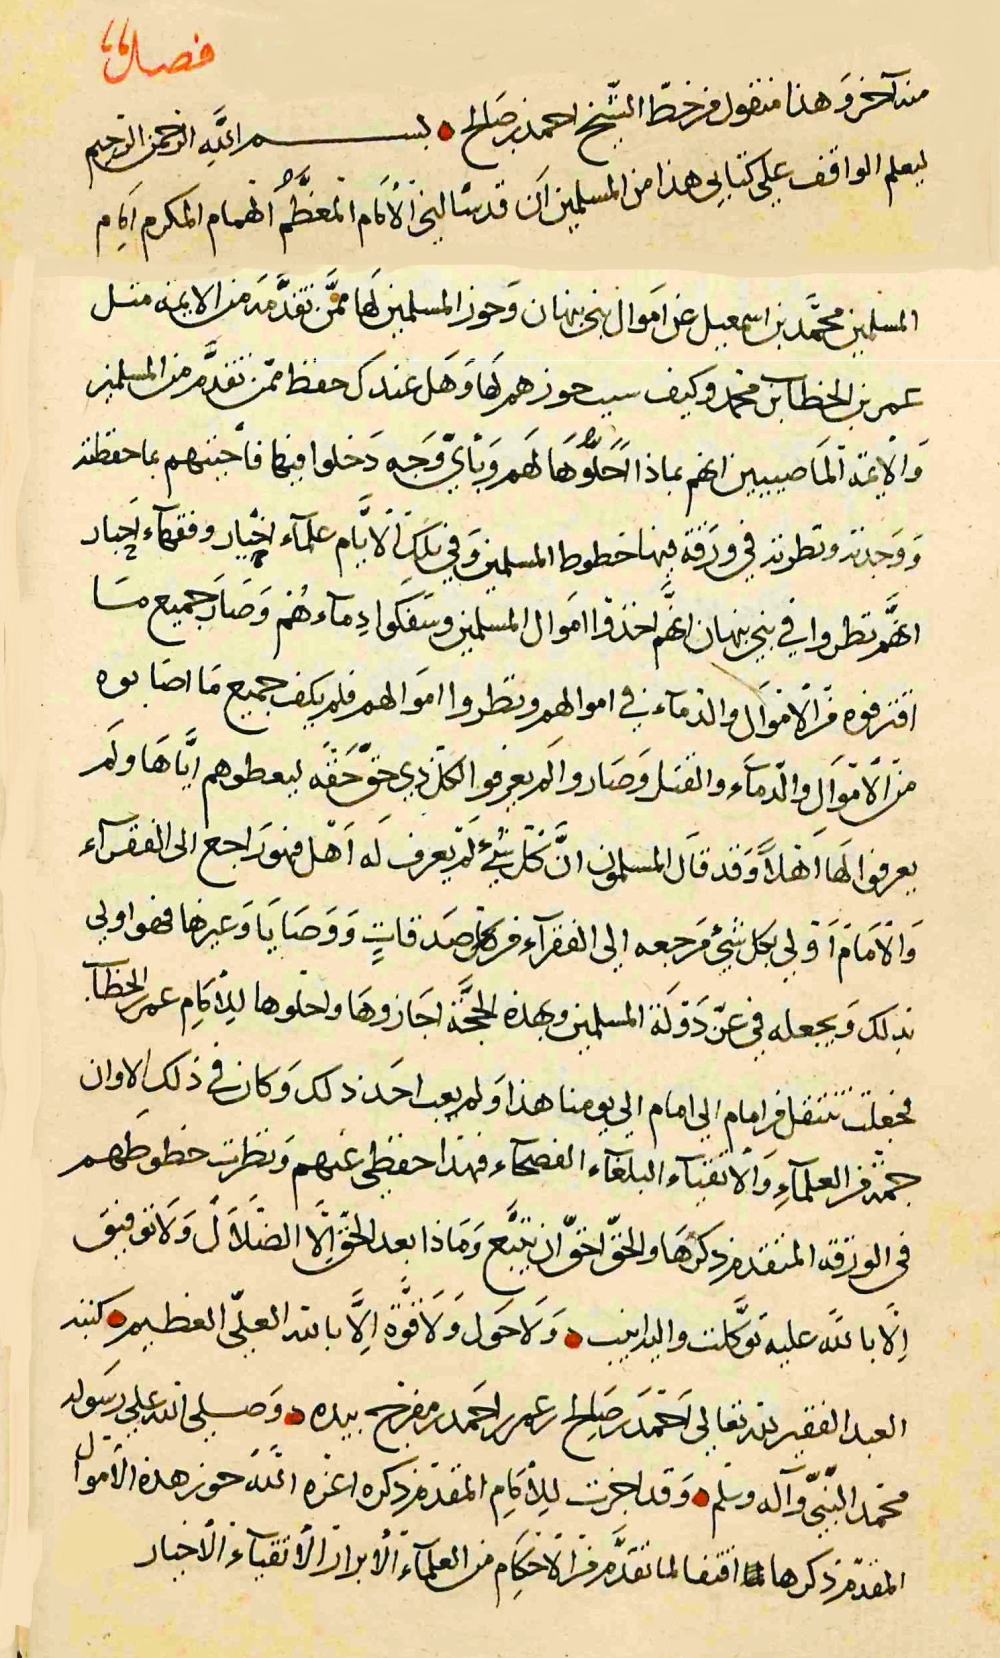 فصل
منه آخر وهذا منقول من خط الشيخ احمد بن صالح بسم الله الرحمن الرحيم
ليعلم الواقف علي كتابي هذا من المسلمين ان قد سألني الأمام المعظم الهمام المكرم امام
المسلمين محمد بن اسمعيل عن اموال بني نبهان وحوز المسلمين لها ممن تقدمه من الايمة مثل
عمر بن الخطاب بن محمد وكيف سبب حوزهم لها وهل عندك حفظ ممن تقدم من المسلمين
والايمة الماضيين انهم بماذا احلوها لهم وبأي وجه دخلوا فيها فأجبتهم بما حفظته
ووجدته ونظرته في ورقة فيها خطوط المسلمين وفي تلك الايام علمآء اخيار وفقهآء احبار
انهم نظروا في بني نبهان انهم اخذوا اموال المسلمين وسفكوا دمآءهم وصار جميع ما
اقترفوه من الاموال والدمآء في اموالهم ونظروا اموالهم فلم يكف جميع ما اصابوه
من الاموال والدمآء والقتل وصاروا لم يعرفوا لكل ذي حق حقه ليعطوهم اياها ولم
يعرفوا لها اهلاً وقد قال المسلمون ان كل شيء لم يعرف له اهل فهو راجع الى الفقرآء
والامام اولي بكل شيء مرجعه الي الفقرآء من صدقات ووصايا وغيرها فهو اولي
بذلك ويجعله في عز دولة المسلمين وبهذه الحجة اجازوها واحلوها للامام عمر بن الخطاب
فجعلت تنتقل من امام الي امام الي يومنا هذا ولم يعب احد ذلك وكان في ذلك الاوان
جمة من العلمآء والاتقيآء البلغآء الفصحآء فهذا حفظي عنهم ونظرت خطوطهم
في الورقة المتقدم ذكرها والحق احق ان يتبع وماذا بعد الحق الا الضلال ولا توفيق
الا بالله عليه توكلت واليه انيب ولا حول ولا قوة الا بالله العلي العظيم كتبه
العبد الفقير لله تعالي احمد بن صالح بن عمر بن احمد بن مفرج بيده وصلي الله علي رسوله
محمد النبي وآله وسلم وقد اجزت للامام المقدم ذكره اعزه الله حوز هذه الاموال
المقدم ذكرها اقتفا لما تقدم من الاحكام من العلمآء الابرار الاتقيآء الاخيار